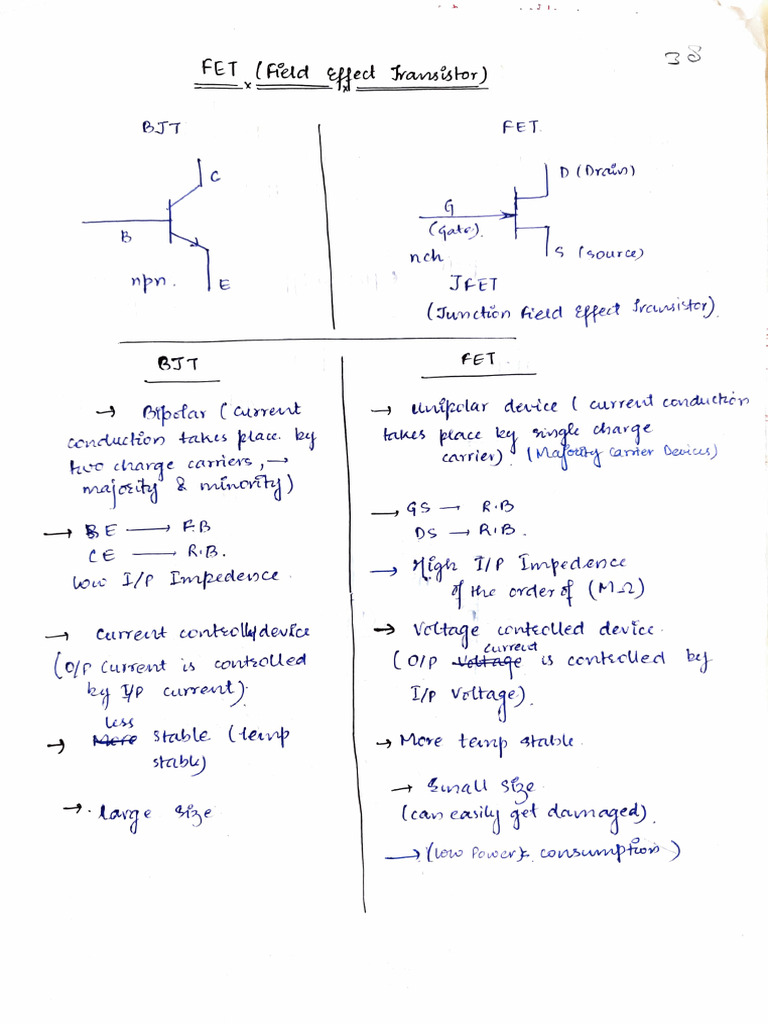 38
FET (Field Effect Transistor)
BJT
C
B
npn.
E
FET.
D (Drain)
G
(Gate).
nch
S (source)
JFET
(Junction Field Effect Transistor).
BJT
→ Bipolar (current
conduction takes place by
two charge carriers, →
majority & minority)
→ BE → F.B
CE → R.B.
low I/P Impedence.
→ current controlly device
(O/P current is controlled
by I/P current).
less
→ More stable (temp
stable)
→ . large size
FET.
→ Unipolar device ( current conduction
takes place by single charge
carrier). (Majority Carrier Devices)
→ GS → R.B
DS → R.B.
→ High I/P Impedence
of the order of (MΩ)
→ Voltage controlled device.
current
(O/P Voltage is controlled by
I/P Voltage).
→ More temp stable.
→ Small size.
(can easily get damaged).
→ (low Power consumption)